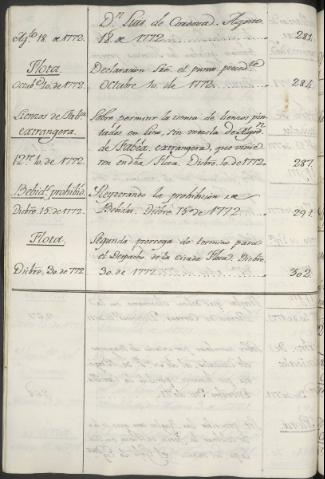 Dn. Luis de Cordova. Agosto
Agto. 18. de 1772. 18. de 1772. 281.
Flota. Declaracion
Octre. 10. de 1772. Octubre 10. de 1772. 284.
Lienzos de Fabca. Sobre permitir la venta de lienzos pin-
extrangera. tados en lino, con mezcla de Algon.
de Fabca. extrangera, que vinie-
12re. 10. de 1772. ron en dha. Flota. Dicbre. 10. de 1772. 287.
Bebidas prohibid. Reiterando la prohibicion de
Dicbre. 15. de 1772. Bebidas. Dicbre. 15. de 1772. 291.
Flota. Segunda prorroga de termino para
el Despacho de la citada Flota. Dicbre.
Dicbre. 30. de 1772. 30. de 1772. 302.